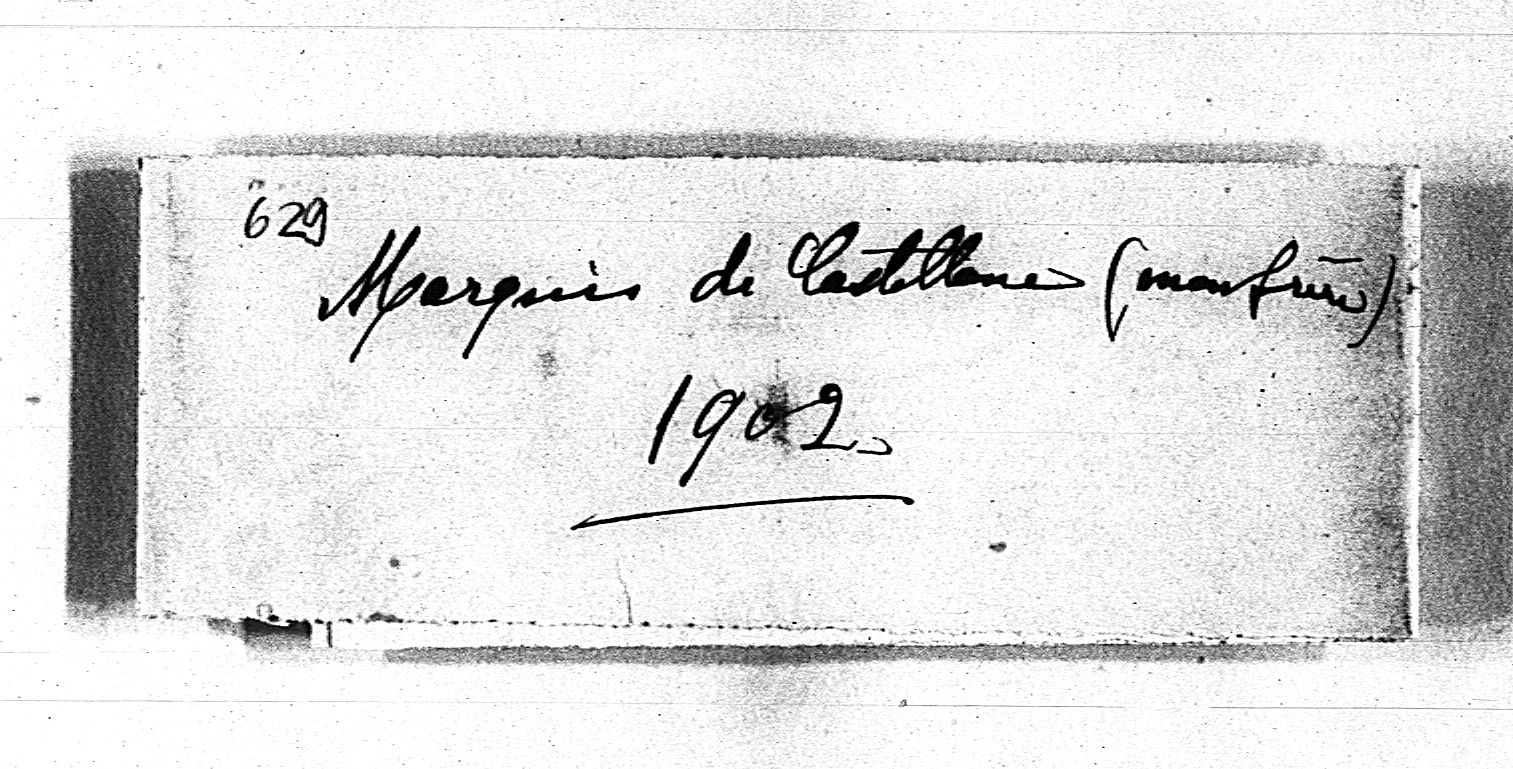 629
Marquis de Castellane (mon frère)
1902.